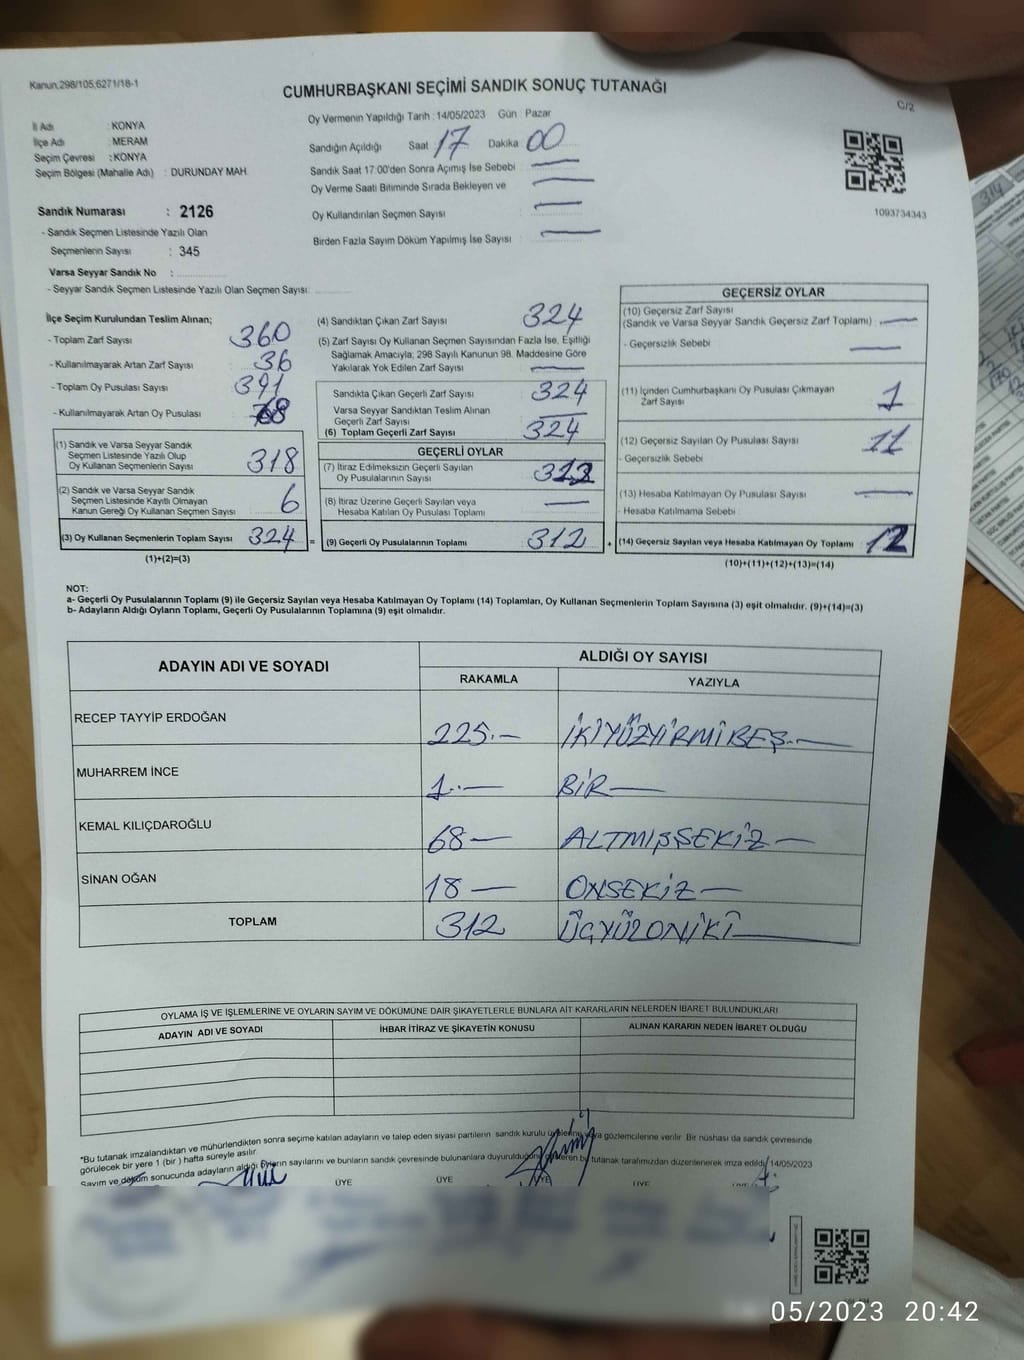 Kanun;298/105;6271/18-1
CUMHURBAŞKANI SEÇİMİ SANDIK SONUÇ TUTANAĞI
C/2
İl Adı : KONYA
İlçe Adı : MERAM
Seçim Çevresi : KONYA
Seçim Bölgesi (Mahalle Adı) : DURUNDAY MAH.
Sandık Numarası : 2126
- Sandık Seçmen Listesinde Yazılı Olan
Seçmenlerin Sayısı : 345
Varsa Seyyar Sandık No :
- Seyyar Sandık Seçmen Listesinde Yazılı Olan Seçmen Sayısı:
Oy Vermenin Yapıldığı Tarih : 14/05/2023 Gün : Pazar
Sandığın Açıldığı Saat 17 Dakika 00
Sandık Saat 17:00'den Sonra Açımış İse Sebebi
Oy Verme Saati Bitiminde Sırada Bekleyen ve
Oy Kullandırılan Seçmen Sayısı
Birden Fazla Sayım Döküm Yapılmış İse Sayısı
1093734343
İlçe Seçim Kurulundan Teslim Alınan;
- Toplam Zarf Sayısı 360
- Kullanılmayarak Artan Zarf Sayısı 36
- Toplam Oy Pusulası Sayısı 391
- Kullanılmayarak Artan Oy Pusulası
(1) Sandık ve Varsa Seyyar Sandık
Seçmen Listesinde Yazılı Olup
Oy Kullanan Seçmenlerin Sayısı 318
(2) Sandık ve Varsa Seyyar Sandık
Seçmen Listesinde Kayıtlı Olmayan
Kanun Gereği Oy Kullanan Seçmen Sayısı 6
(3) Oy Kullanan Seçmenlerin Toplam Sayısı 324 =
(1)+(2)=(3)
(4) Sandıktan Çıkan Zarf Sayısı 324
(5) Zarf Sayısı Oy Kullanan Seçmen Sayısından Fazla İse, Eşitliği
Sağlamak Amacıyla; 298 Sayılı Kanunun 98. Maddesine Göre
Yakılarak Yok Edilen Zarf Sayısı
Sandıkta Çıkan Geçerli Zarf Sayısı 324
Varsa Seyyar Sandıktan Teslim Alınan
Geçerli Zarf Sayısı
(6) Toplam Geçerli Zarf Sayısı 324
GEÇERLİ OYLAR
(7) İtiraz Edilmeksizin Geçerli Sayılan
Oy Pusulalarının Sayısı
(8) İtiraz Üzerine Geçerli Sayılan veya
Hesaba Katılan Oy Pusulası Toplamı
(9) Geçerli Oy Pusulalarının Toplamı 312 +
GEÇERSİZ OYLAR
(10) Geçersiz Zarf Sayısı
(Sandık ve Varsa Seyyar Sandık Geçersiz Zarf Toplamı)
- Geçersizlik Sebebi
(11) İçinden Cumhurbaşkanı Oy Pusulası Çıkmayan
Zarf Sayısı 1
(12) Geçersiz Sayılan Oy Pusulası Sayısı 11
- Geçersizlik Sebebi
(13) Hesaba Katılmayan Oy Pusulası Sayısı
- Hesaba Katılmama Sebebi
(14) Geçersiz Sayılan veya Hesaba Katılmayan Oy Toplamı 12
(10)+(11)+(12)+(13)=(14)
NOT:
a- Geçerli Oy Pusulalarının Toplamı (9) ile Geçersiz Sayılan veya Hesaba Katılmayan Oy Toplamı (14) Toplamları, Oy Kullanan Seçmenlerin Toplam Sayısına (3) eşit olmalıdır. (9)+(14)=(3)
b- Adayların Aldığı Oyların Toplamı, Geçerli Oy Pusulalarının Toplamına (9) eşit olmalıdır.
ADAYIN ADI VE SOYADI ALDIĞI OY SAYISI
RAKAMLA YAZIYLA
RECEP TAYYİP ERDOĞAN 225.- İKİYÜZYİRMİBEŞ.-
MUHARREM İNCE 1.- BİR-
KEMAL KILIÇDAROĞLU 68- ALTMIŞSEKİZ-
SİNAN OĞAN 18- ONSEKİZ-
TOPLAM 312 ÜÇYÜZONİKİ-
OYLAMA İŞ VE İŞLEMLERİNE VE OYLARIN SAYIM VE DÖKÜMÜNE DAİR ŞİKAYETLERLE BUNLARA AİT KARARLARIN NELERDEN İBARET BULUNDUKLARI
ADAYIN ADI VE SOYADI İHBAR İTİRAZ VE ŞİKAYETİN KONUSU ALINAN KARARIN NEDEN İBARET OLDUĞU
*Bu tutanak imzalandıktan ve mühürlendikten sonra seçime katılan adayların ve talep eden siyasi partilerin sandık kurulu gözlemcilerine verilir. Bir nüshası da sandık çevresinde
görülecek bir yere 1 (bir) hafta süreyle asılır.
Sayım ve döküm sonucunda adayların aldığı oyların sayılarını ve bunların sandık çevresinde bulunanlara duyurulduğunu gösteren bu tutanak tarafımızdan düzenlenerek imza edildi. 14/05/2023
ÜYE ÜYE ÜYE ÜYE
05/2023 20:42